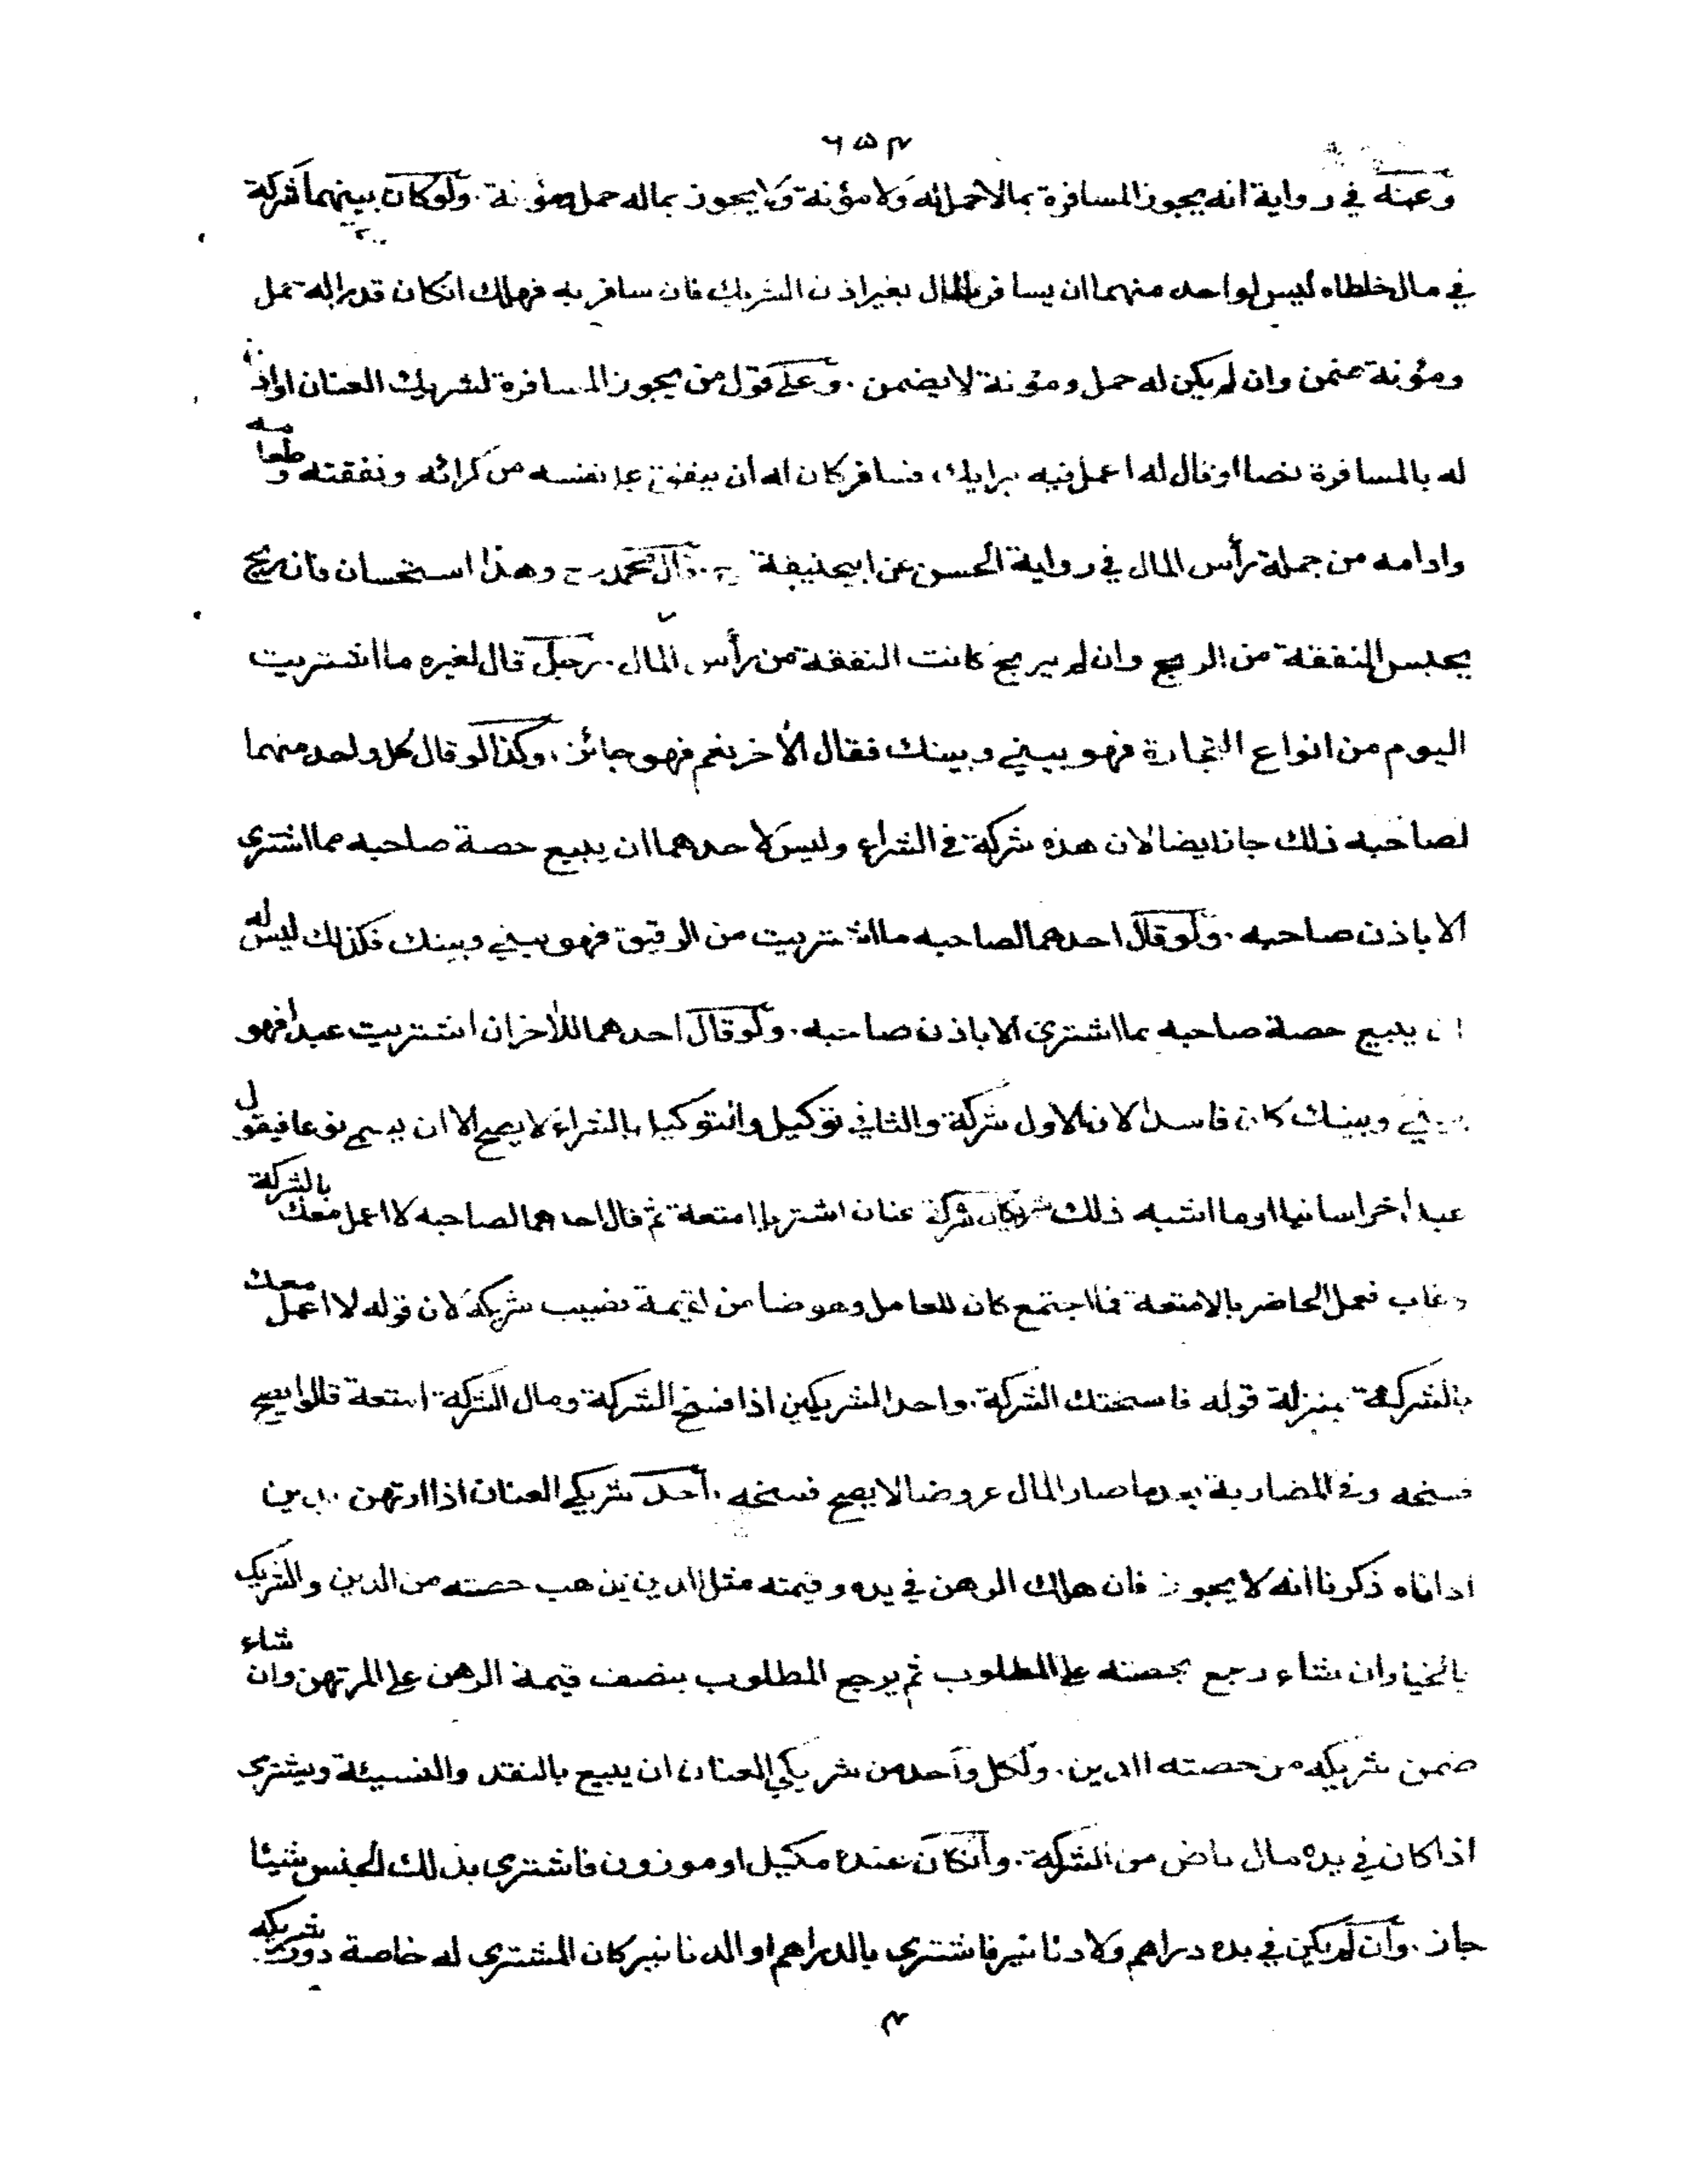 ٦٥٤
وعنه في رواية انه يجوز المسافرة بمالاحمل له ولا مؤنة ولا يجوز بماله حمل ومؤنة . ولوكان بينهما شركة
في مال خلطاه ليس لواحد منهما ان يسافر بالمال بغير اذن الشريك فان سافر به فهلك انكان قدرا له حمل
ومؤنة ضمن وان لم يكن له حمل ومؤنة لا يضمن . وعلى قول من يجوز المسافرة لشريك العنان او اذن
له بالمسافرة نصا او قال له اعمل فيه برايك فسافر كان له ان ينفق على نفسه من كرائه ونفقته وطعامه
وادامه من جملة رأس المال في رواية الحسن عن ابيحنيفة رح . قال محمد رح وهذا استحسان فان ربح
يحبس النفقة من الربح وان لم يربح كانت النفقة من رأس المال . رجل قال لغيره ما اشتريت
اليوم من انواع التجارة فهو بيني وبينك فقال الأخر نعم فهو جائز . وكذا لو قال كل واحد منهما
لصاحبه ذلك جاز ايضا لان هذه شركة في الشراء وليس لاحدهما ان يبيع حصة صاحبه مما اشترى
الا باذن صاحبه . ولو قال احدهما لصاحبه ما اشتريت من الرقيق فهو بيني وبينك فكذلك ليس له
ان يبيع حصة صاحبه مما اشترى الا باذن صاحبه . ولو قال احدهما للأخر ان اشتريت عبدا فهو
بيني وبينك كان فاسدا لان الاول شركة والثاني توكيل والتوكيل بالشراء لا يصح الا ان يسمي نوعا فيقول
عبدا خراسانيا او ما اشبه ذلك شريكان شركة عنان اشتريا امتعة ثم قال احدهما لصاحبه لا اعمل معك بالشركة
وغاب فعمل الحاضر بالامتعة فما اجتمع كان للعامل وهو ضامن لقيمة نصيب شريكه لان قوله لا اعمل معك
بالشركة بمنزلة قوله فاسختك الشركة . واحد الشريكين اذا فسخ الشركة ومال الشركة امتعة قالوا يصح
فسخه وفي المضاربة بعد ما صار المال عروضا لا يصح فسخه . احد شريكي العنان اذا ارتهن بدين
اداناه ذكرنا انه لا يجوز فان هلك الرهن في يده وقيمته مثل الدين يذهب حصته من الدين والشريك
بالخيار ان شاء رجع بحصته على المطلوب ثم يرجع المطلوب بنصف قيمة الرهن على المرتهن وان شاء
ضمن شريكه من حصته الدين . ولكل واحد من شريكي العنان ان يبيع بالنقد والنسيئة ويشترى
اذا كان في يده مال ناض من الشركة . وانكان عنده مكيل او موزون فاشترى بذلك الجنس شيئا
جاز . وان لم يكن في يده دراهم ولا دنانير فاشترى بالدراهم او الدنانير كان المشترى له خاصة دون شريكه
٤